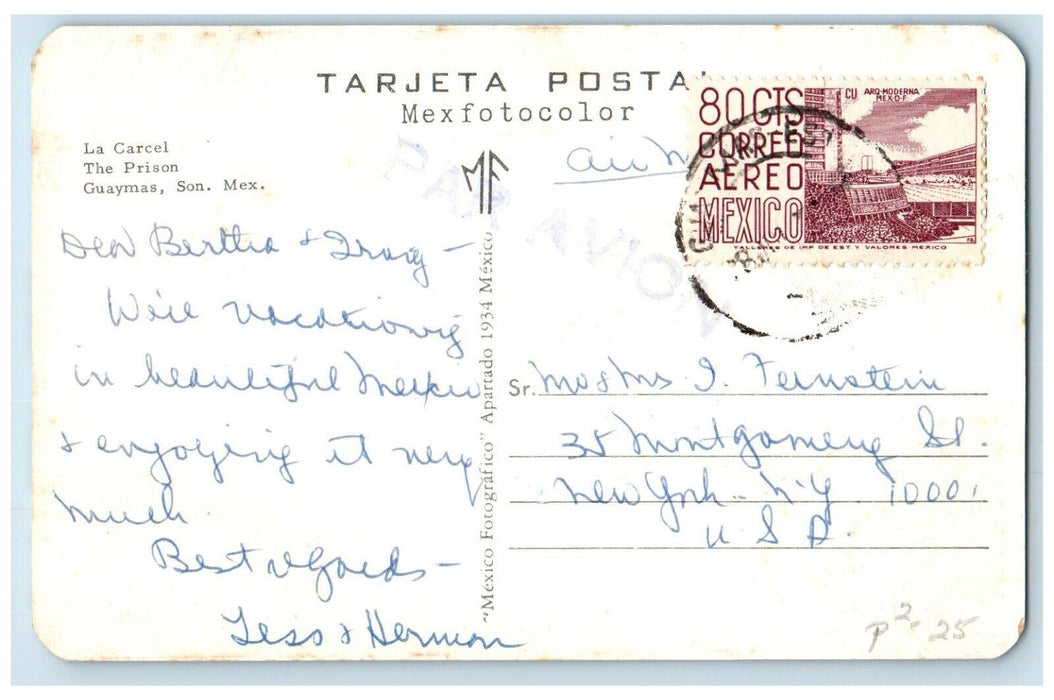 TARJETA POSTAL
Mexfotocolor
La Carcel
The Prison
Guaymas, Son. Mex.
MF
air
PAR AVION
80 CTS
CORREO
AEREO
MEXICO
CU ARQ. MODERNA
MEX-D-F
TALLERES DE IMP DE EST Y VALORES MEXICO
Dear Bertha & Irving -
We're vacationing
in beautiful Mexico
& enjoying it very
much.
Best regards -
Tess & Herman
"México Fotográfico" Apartado 1934 México
Sr. Mr & Mrs I. Fernstein
35 Montgomery St.
New York - N.Y. 10001
U S A.
P 2.25